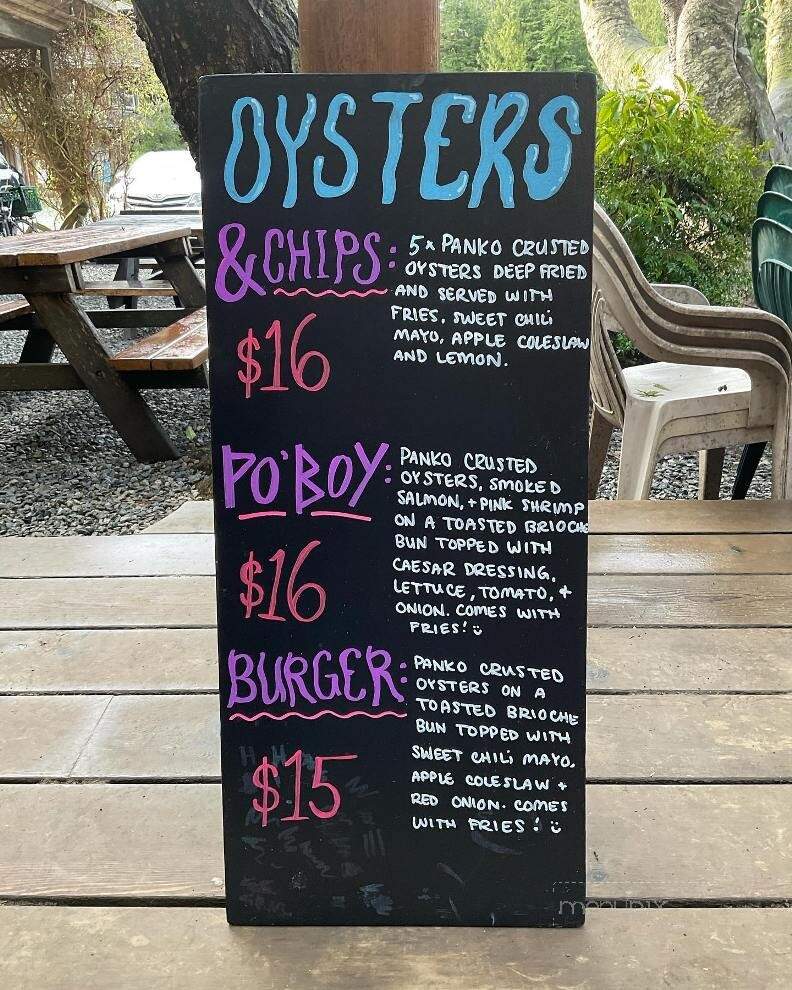 OYSTERS
& CHIPS:
5x PANKO CRUSTED
OYSTERS DEEP FRIED
AND SERVED WITH
FRIES, SWEET CHILI
MAYO, APPLE COLESLAW
AND LEMON.
$16
PO'BOY:
PANKO CRUSTED
OYSTERS, SMOKED
SALMON, + PINK SHRIMP
ON A TOASTED BRIOCHE
BUN TOPPED WITH
CAESAR DRESSING,
LETTUCE, TOMATO, +
ONION. COMES WITH
FRIES! ü
$16
BURGER:
PANKO CRUSTED
OYSTERS ON A
TOASTED BRIOCHE
BUN TOPPED WITH
SWEET CHILI MAYO,
APPLE COLESLAW +
RED ONION. COMES
WITH FRIES! ü
$15
menupix